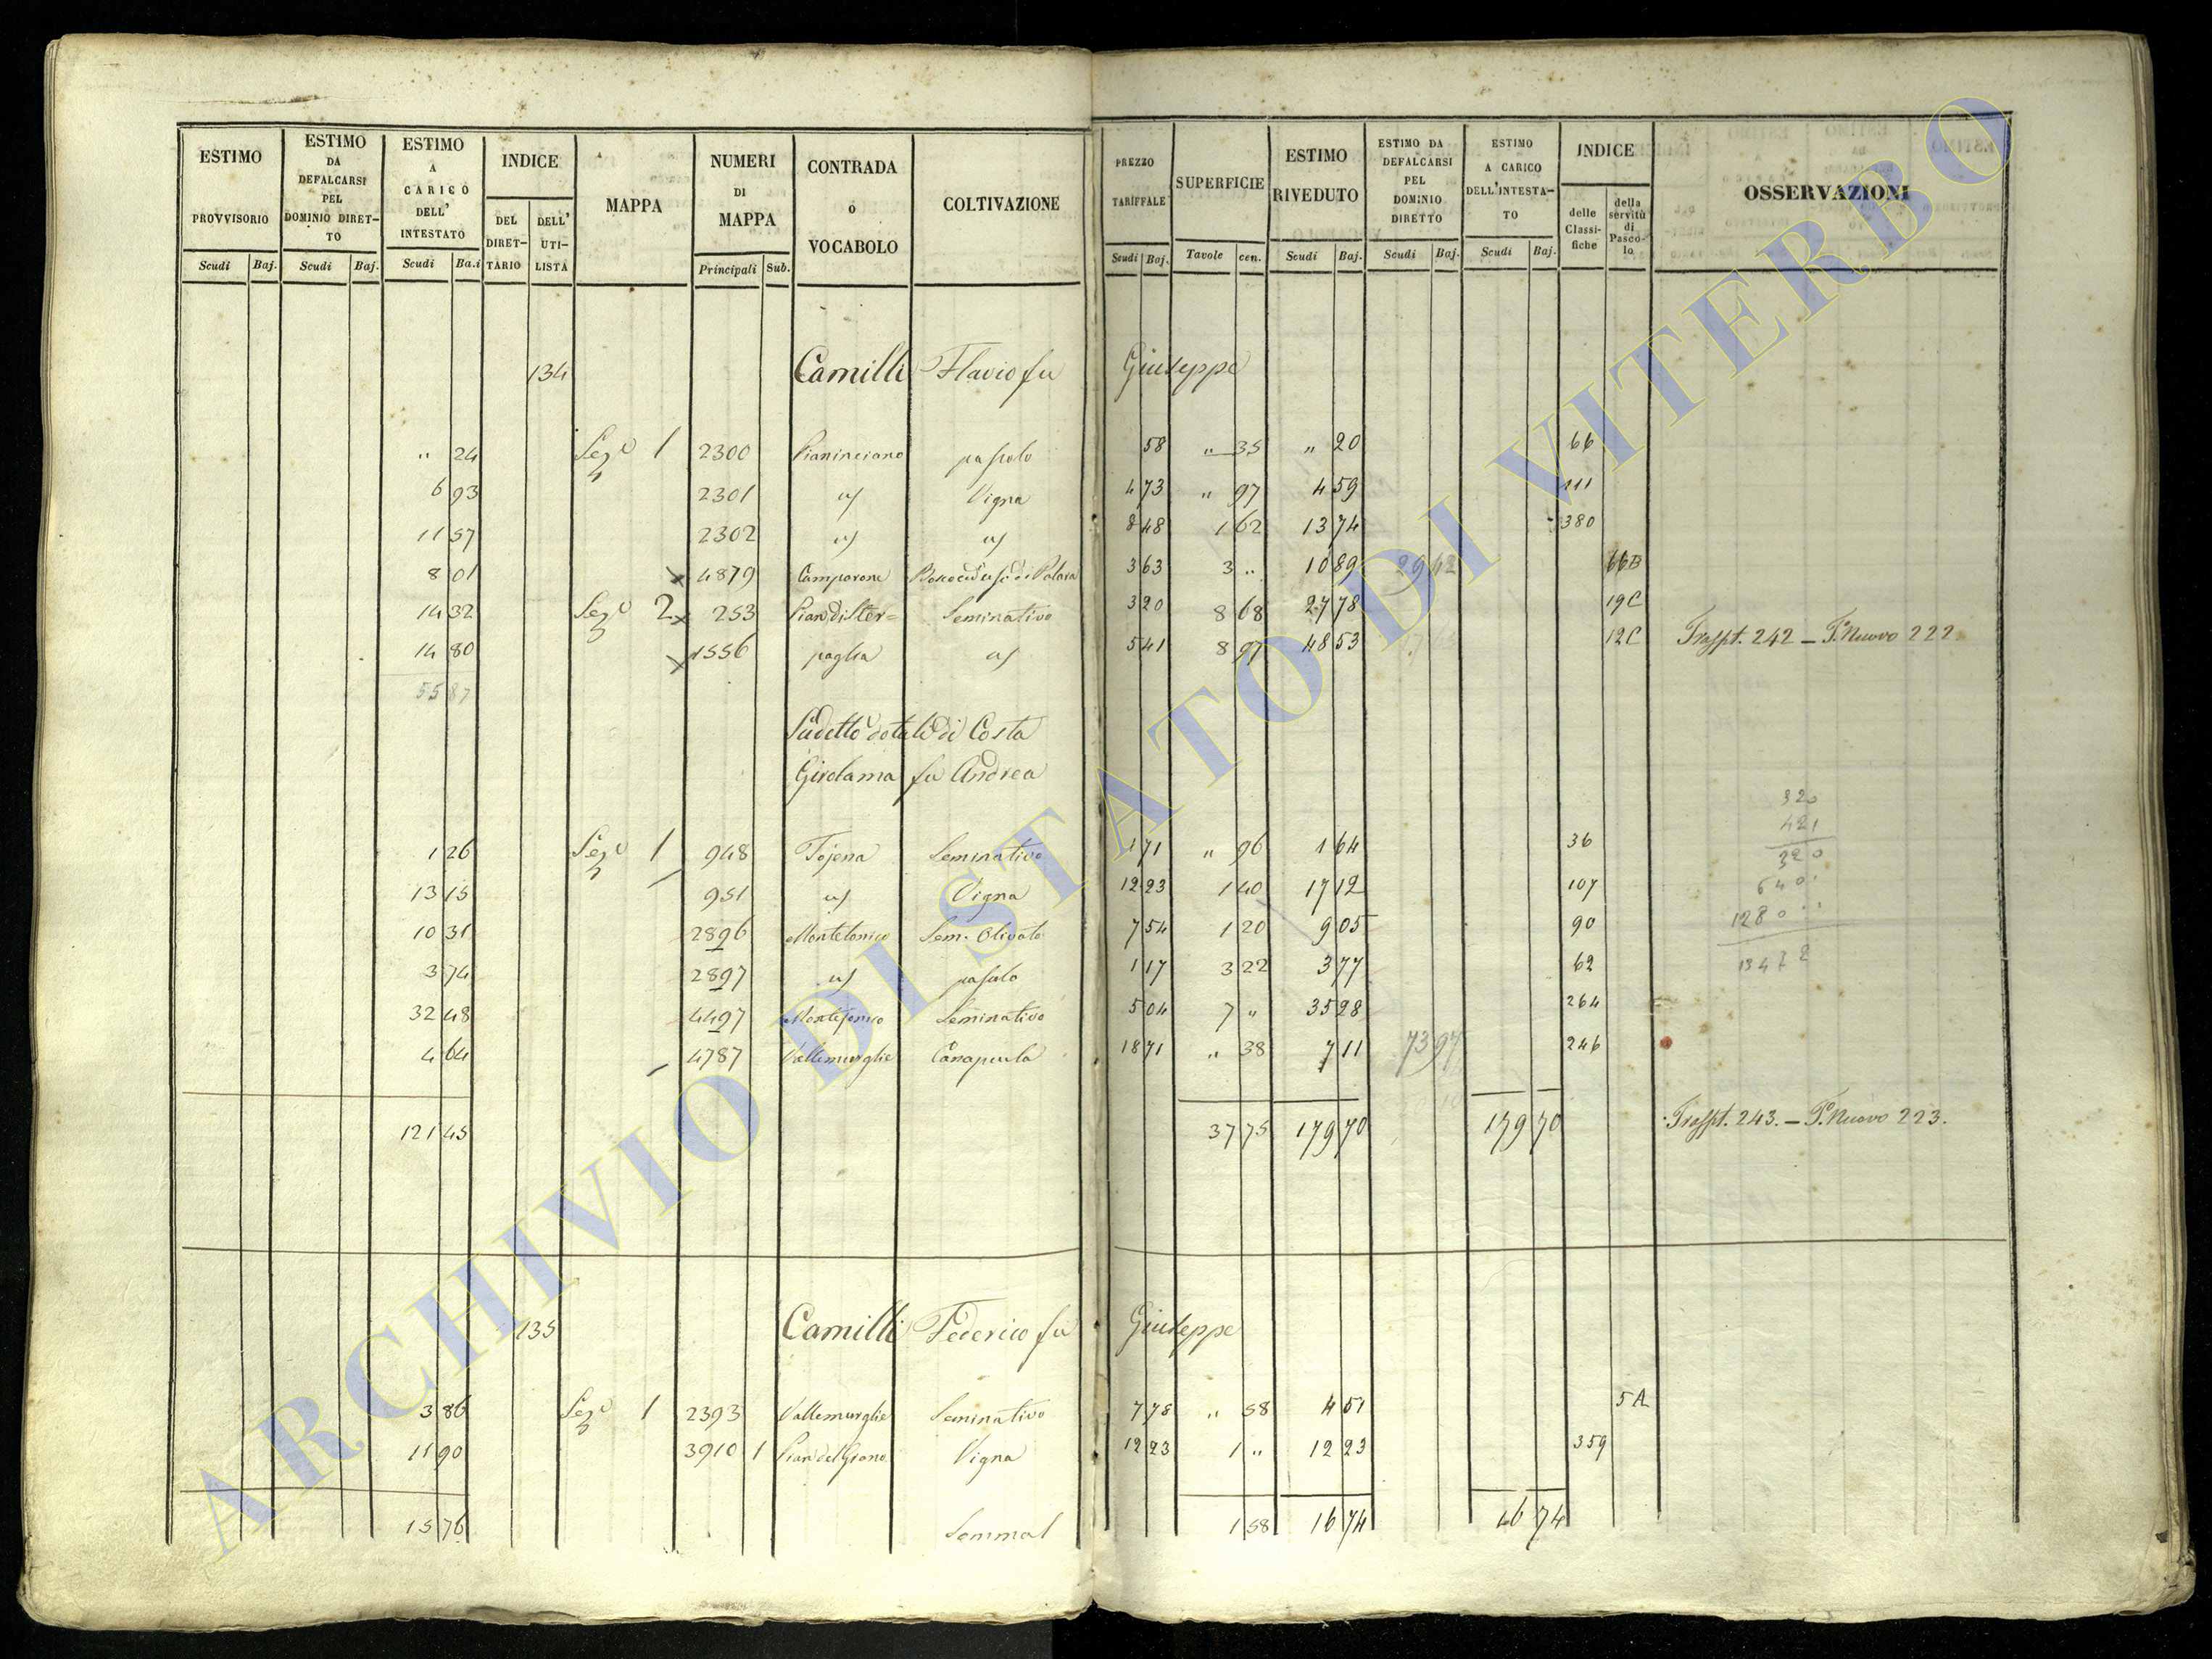 ESTIMO PROVVISORIO | ESTIMO DA DEFALCARSI PEL DOMINIO DIRET-TO | ESTIMO A CARICO DELL' INTESTATO | INDICE | MAPPA | NUMERI DI MAPPA | CONTRADA o VOCABOLO | COLTIVAZIONE | PREZZO TARIFFALE | SUPERFICIE | ESTIMO RIVEDUTO | ESTIMO DA DEFALCARSI PEL DOMINIO DIRETTO | ESTIMO A CARICO DELL'INTESTA-TO | INDICE | OSSERVAZIONI
DEL DIRET-TARIO | DELL' UTI-LISTA | delle Classi-fiche | della servitù di Pasco-lo
Scudi | Baj. | Scudi | Baj. | Scudi | Ba.i | Principali | Sub. | Scudi | Baj. | Tavole | cen. | Scudi | Baj. | Scudi | Baj. | Scudi | Baj.
134 Camilli Flavio fu Giuseppe
" 24 Sez.e 1 2300 pascolo 58 " 35 " 20 66
6 93 2301 id Vigna 4 73 " 97 4 59 111
11 57 2302 id id 8 48 1 62 13 74 380
8 01 x 4879 Camporone 3 63 3 " 10 89 29 42 66B
14 32 Sez.e 2 x 253 Pian di Ster= Seminativo 3 20 8 68 27 78 19C
14 80 x 1556 paglia id 5 41 8 97 48 53 12C Traspt. 242 - P. Nuovo 222
55 87
Sudetto dotale di Costa
Girolama fu Andrea
320
421
1 26 Sez.e 1 948 Tojena Seminativo 1 71 " 96 1 64 36
320
13 15 951 id Vigna 12 23 1 40 17 12 107
640
10 31 2896 Sem. Olivato 7 54 1 20 9 05 90
1280
3 74 2897 id pascolo 1 17 3 22 3 77 62
1347 2
32 48 4497 Seminativo 5 04 7 " 35 28 264
4 64 4787 Vallemurglie Canapula 18 71 " 38 7 11 73 97 246
121 45 37 75 179 70 179 70 Traspt. 243. - P. Nuovo 223.
135 Camilli Federico fu Giuseppe
3 86 Sez.e 1 2393 Vallemurglie Seminativo 7 78 " 58 4 51 5A
11 90 3910 1 Vigna 12 23 1 " 12 23 359
15 76 1 58 16 74 16 74
ARCHIVIO DI STATO DI VITERBO